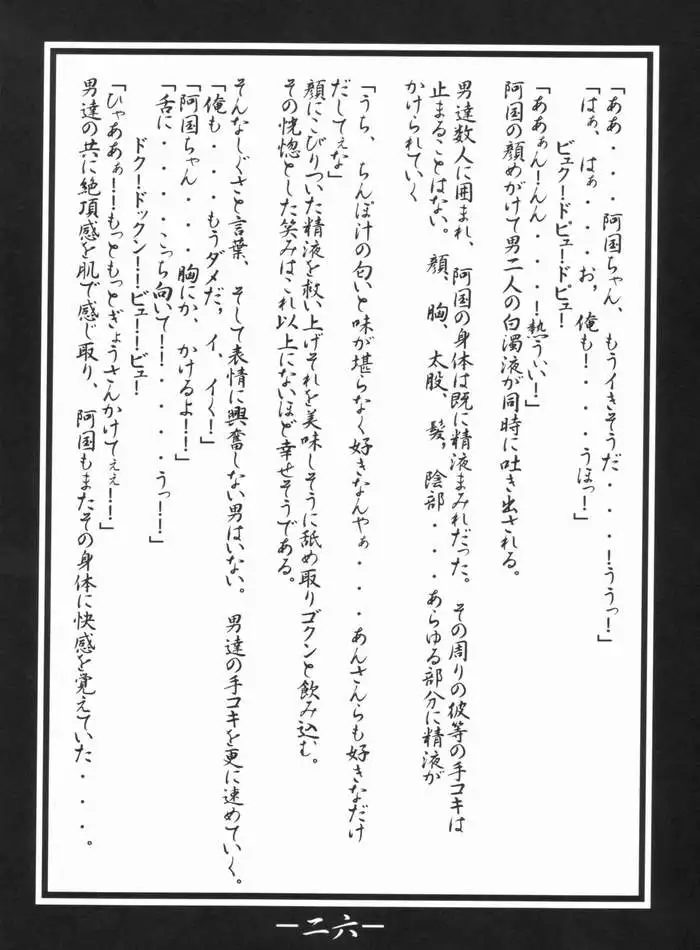 「ああ・・・阿国ちゃん、もうイきそうだ・・・！ううっ！」
「はぁ、はぁ・・・・お，俺も！・・・・うほっ！」
ビュク！ドビュー！ドビュ！
「ああぁん！んん・・・・！熱ういい！」
阿国の顔めがけて男二人の白濁液が同時に吐き出される。
男達数人に囲まれ、阿国の身体は既に精液まみれだった。その周りの彼等の手コキは
止まることはない。顔，胸，太股，髪，陰部・・・・あらゆる部分に精液が
かけられていく
「うち、ちんぽ汁の匂いと味が堪らなく好きなんやぁ・・・あんさんらも好きなだけ
だしてぇな」
顔にこびりついた精液を救い上げそれを美味しそうに舐め取りゴクンと飲み込む。
その恍惚とした笑みはこれ以上にないほど幸せそうである。
そんなしぐさと言葉、そして表情に興奮しない男はいない。男達の手コキを更に速めていく。
「俺も・・・もうダメだ，イ、イく！」
「阿国ちゃん・・・胸にか、かけるよ！！」
「舌に・・・・こっち向いて！！・・・・うっ！！」
ドク！ドックン！！ビュー！ビュ！
「ひゃああぁ！！もっともっとぎょうさんかけてぇぇ！！」
男達の共に絶頂感を肌で感じ取り、阿国もまたその身体に快感を覚えていた・・・。
－二六－